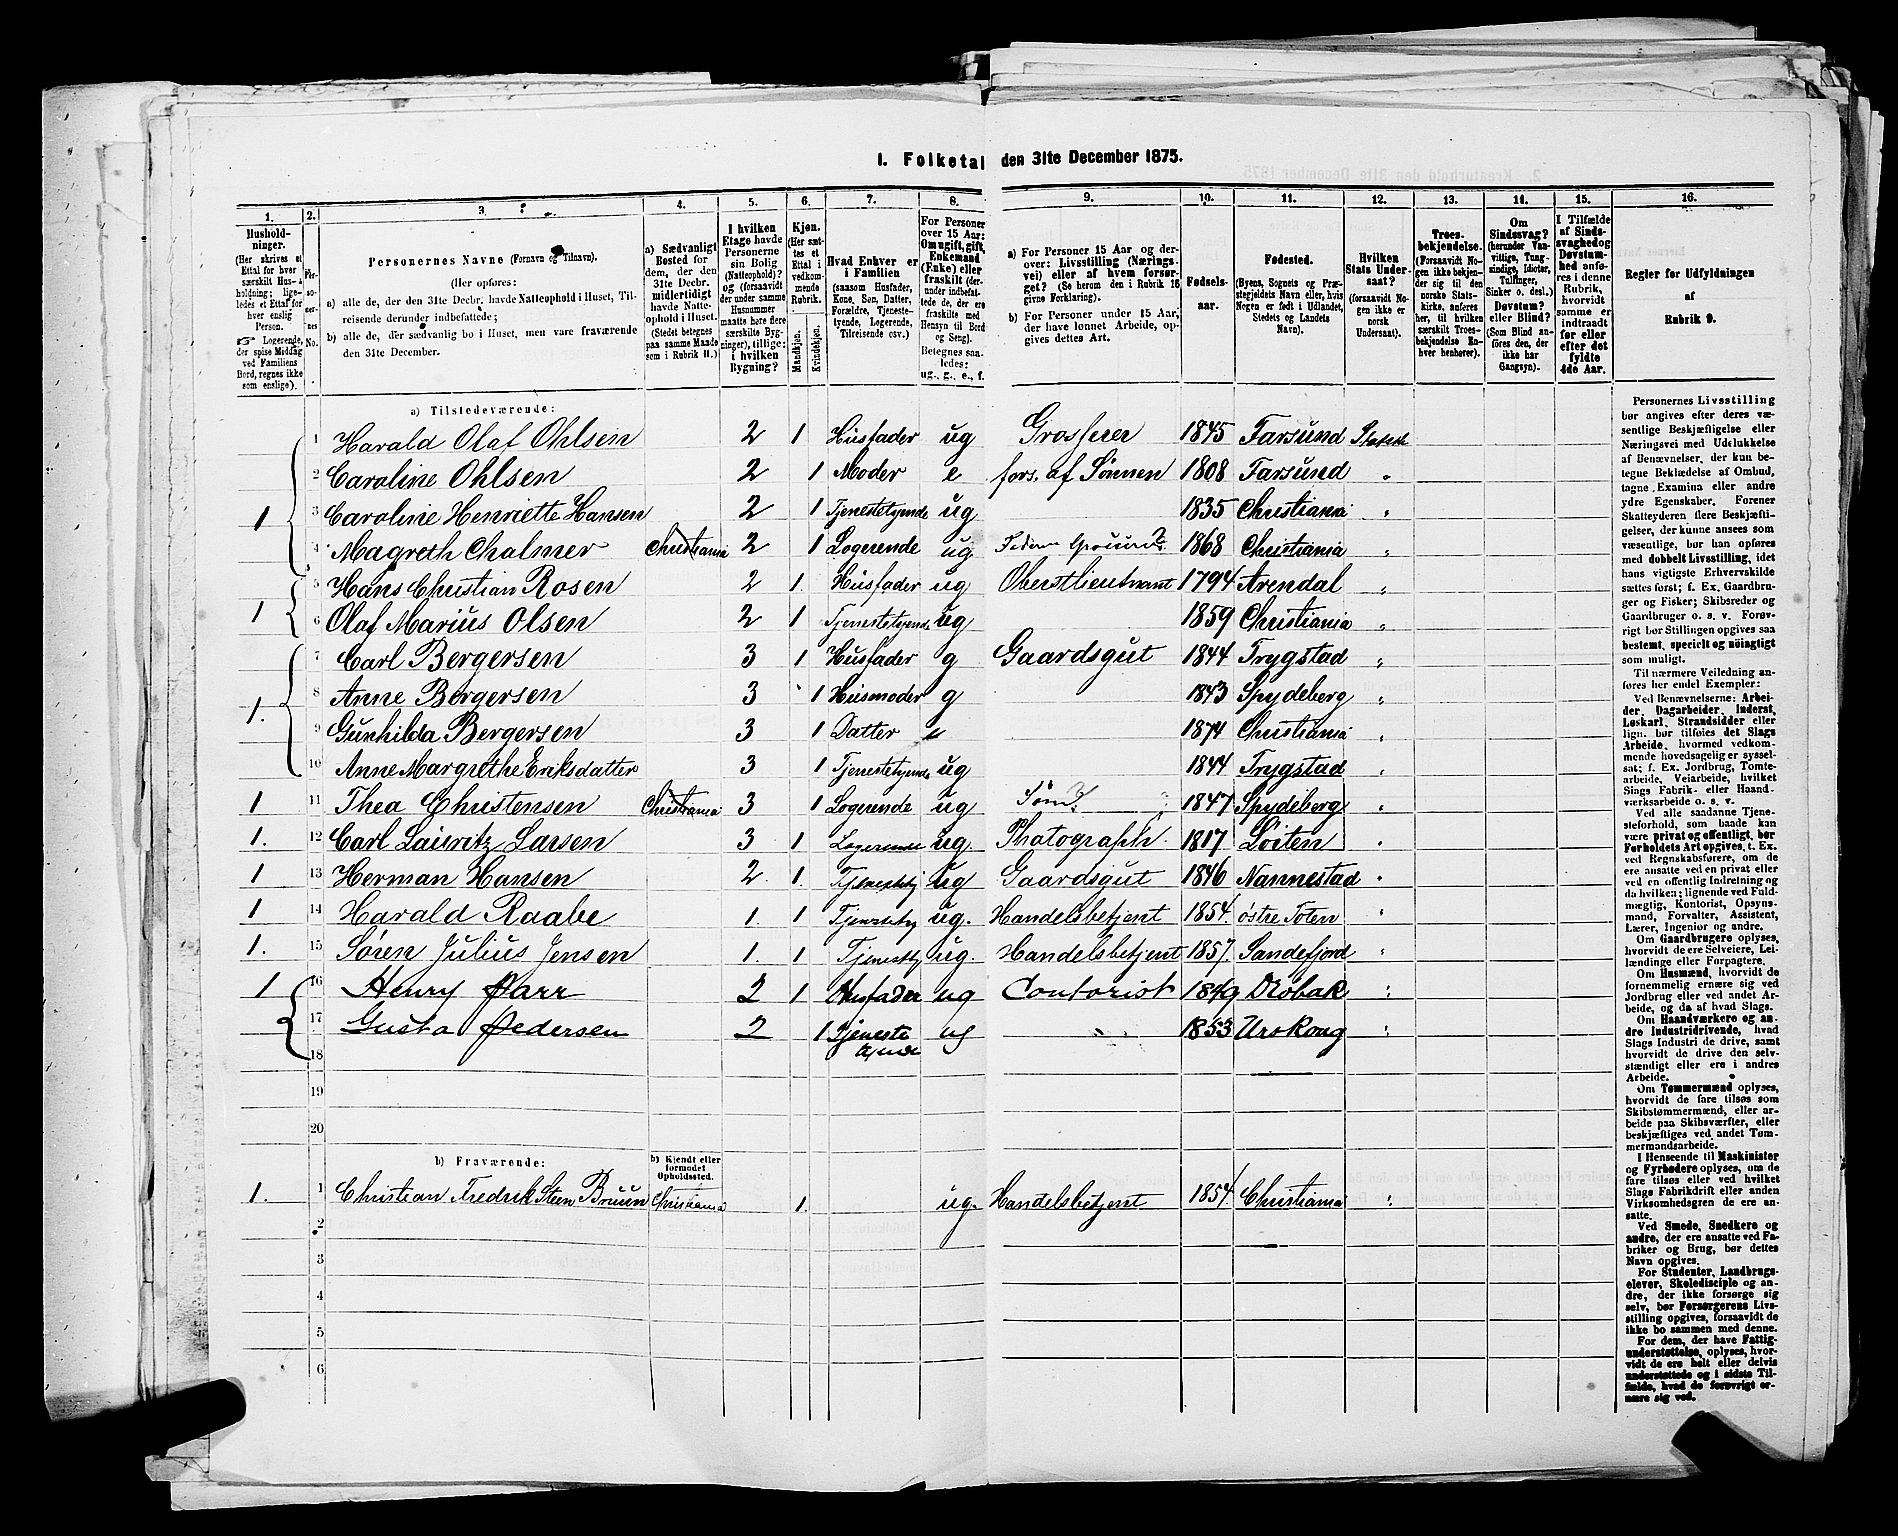 1. Folketal den 31te December 1875.
1. 2. 3. 4. 5. 6. 7. 8. 9. 10. 11. 12. 13. 14. 15. 16.
Hushold-
ninger.
(Her skrives et
Ettal for hver
særskilt Hus-
holdning; lige-
ledes et Ettal for
hver enslig
Person.
Logerende,
der spise Middag
ved Familiens
Bord, regnes ikke
som enslige).
Per-
so-
ner-
nes
No.
Personernes Navne (Fornavn og Tilnavn).
(Her opføres:
a) alle de, der den 31te Decbr. havde Natteophold i Huset, Til-
reisende derunder indbefattede;
b) alle de, der sædvanlig bo i Huset, men vare fraværende
den 31te December.
a) Sædvanligt
Bosted for
dem, der den
31te Decbr.
midlertidigt
havde Natte-
ophold i Huset.
(Stedet betegnes
paa samme Maade
som i Rubrik 11.)
I hvilken
Etage havde
Personerne
sin Bolig
(Natteophold)?
og (forsaavidt
der under samme
Husnummer
maatte høre flere
særskilte Byg-
ninger), tillige:
i hvilken
Bygning?
Kjøn.
(Her sæt-
tes et
Ettal i
vedkom-
mende
Rubrik.
Mandkjøn.
Kvindekjøn.
Hvad Enhver er
i Familien
(saasom Husfader,
Kone, Søn, Datter,
Forældre, Tjeneste-
tyende, Logerende,
Tilreisende osv.)
For Personer
over 15 Aar:
Om ugift, gift,
Enkemand
(Enke) eller
fraskilt (der-
under indbefat-
tede de, der ere
fraskilte med
Hensyn til Bord
og Seng).
Betegnes saa-
ledes:
ug., g., e., f.
a) For Personer 15 Aar og der-
over: Livsstilling (Nærings-
vei) eller af hvem forsør-
get? (Se herom den i Rubrik 16
givne Forklaring).
b) For Personer under 15 Aar,
der have lønnet Arbeide, op-
gives dettes Art.
Fødsels-
aar.
Fødested.
(Byens, Sognets og Præ-
stegjeldets Navn eller, hvis
Nogen er født i Udlandet,
Stedets og Landets
Navn).
Hvilken
Stats Under-
saat?
(forsaavidt No-
gen ikke er
norsk
Undersaat).
Troes-
bekjendelse.
(Forsaavidt No-
gen ikke bekjen-
der sig til den
norske Stats-
kirke, anføres
her, til hvilken
særskilt Troes-
bekjendelse En-
hver henhører).
Om
Sindssvag?
(herunder Van-
vittige, Tung-
sindige, Idioter,
Tullinger,
Sinker o. desl.)
Døvstum?
eller Blind?
(Som Blind an-
føres den, der
ikke har
Gangsyn).
I Tilfælde
af Sinds-
svaghed og
Døvstum-
hed anfø-
res i denne
Rubrik,
hvorvidt
samme er
indtraadt
før eller
efter det
fyldte
4de Aar.
Regler for Udfyldningen
af
Rubrik 9.
a) Tilstedeværende:
1 Harald Olaf Ohlsen 2 1 Husfader ug Grosserer 1845 Farsund
1 2 Caroline Ohlsen 2 1 Moder e fors. af Sønnen 1808 Farsund "
3 Caroline Henriette Hansen 2 1 Tjenestetyende ug 1835 Christiania "
4 Magreth Chalmer Christiania 2 1 Logerende ug 1868 Christiania "
5 Hans Christian Rosen 2 1. Husfader ug Oberstlieutnant 1794 Arendal "
1 6 Olaf Marius Olsen 2 1 Tjenestetyende ug 1859 Christiania "
7 Carl Bergersen 3 1 Husfader g Gaardsgut 1844 Trygstad "
1. 8 Anne Bergersen 3 1 Husmoder g 1843 Spydeberg "
9 Gunhilda Bergersen 3 1 Datter 1874 Christiania "
10 Anne Margrethe Eriksdatter 3 1 Tjenestetyende ug 1844 Trygstad
1 11 Thea Christensen Christiania 3 1 Logerende ug 1847 Spydeberg
1. 12 Carl Lauritz Larsen 3 1 Logerende ug. Photograph. 1817 Löiten
1 13 Herman Hansen 2. 1. Tjenestety ug Gaardsgut 1846 Nannestad "
1 14 Harald Raabe 1. 1 Tjenestety ug. Handelsbetjent 1854. østre Toten "
1. 15 Sören Julius Jensen 1. 1 Tjenestety ug. Handelsbetjent 1857. Sandefjord "
1 16 Henry Parr 2 1 Husfader ug Contorist 1849 Drøbak "
17 Gusta Pedersen 2 1 Tjeneste ug " 1853 Urskoug "
tyende
18
19
20
b) Fraværende:
b) Kjendt eller
formodet
Opholdssted.
1. 1 Christian Fredrik Steen Bruun Christiania 1. ug. Handelsbetjent 1854. Christiania "
2
3
4
5
6
Personernes Livsstilling
bør angives efter deres væ-
sentlige Beskjæftigelse eller
Næringsvei med Udelukkelse
af Benævnelser, der kun be-
tegne Beklædelse af Ombud,
tagne Examina eller andre
ydre Egenskaber. Forener
Skatteyderen flere Beskjæfti-
gelser, der kunne ansees som
væsentlige, bør han opføres
med dobbelt Livsstilling, idet
hans vigtigste Erhvervskilde
sættes først; f. Ex. Gaardbru-
ger og Fisker; Skibsreder og
Gaardbruger o. s. v. Forøv-
rigt bør Stillingen opgives saa
bestemt, specielt og nöiagtigt
som muligt.
Til nærmere Veiledning an-
føres her endel Exempler:
Ved Benævnelserne: Arbei-
der, Dagarbeider, Inderst,
Løskarl, Strandsidder eller
lign. bør tilføies det Slags
Arbeide, hvormed vedkom-
mende hovedsagelig er syssel-
sat; f. Ex. Jordbrug, Tomte-
arbeide, Veiarbeide, hvilket
Slags Fabrik- eller Haand-
værksarbeide o. s. v.
Ved alle saadanne Tjene-
steforhold, som baade kan
være privat og offentligt, bør
Forholdets Art opgives, t. Ex.
ved Regnskabsførere, om de
ere ansatte ved en privat eller
ved en offentlig Indretning og
da hvilken; lignende ved Fuld-
mægtig, Kontorist, Opsyns-
mand, Forvalter, Assistent,
Lærer, Ingeniør og andre.
Om Gaardbrugere oplyses,
hvorvidt de ere Selveiere, Lei-
lændinge eller Forpagtere.
Om Husmænd, hvorvidt de
fornemmelig ernære sig ved
Jordbrug eller ved andet Ar-
beide, og da af hvad Slags.
Om Haandværkere og an-
dre Industridrivende, hvad
Slags Industri de drive, samt
hvorvidt de drive den selv-
stændigt eller ere i andres
Arbeide.
Om Tømmermænd oplyses,
hvorvidt de fare tilsøs som
Skibstømmermænd, eller ar-
beide paa Skibsværfter, eller
beskjæftiges ved andet Tøm-
mermandsarbeide.
I Henseende til Maskinister
og Fyrbødere oplyses, om de
fare tilsøs eller ved hvilket
Slags Fabrikdrift eller anden
Virksomhedsgren de ere an-
satte.
Ved Smede, Snedkere og
andre, der ere ansatte ved Fa-
briker og Brug, bør dettes
Navn opgives.
For Studenter, Landbrugs-
elever, Skoledisciple og an-
dre, der ikke forsørge sig
selv, bør Forsørgerens Livs-
stilling opgives, forsaavidt de
ikke bo sammen med denne.
For dem, der have Fattig-
understøttelse, oplyses, hvor-
vidt de ere helt eller delvis
understøttede og i sidste Til-
fælde, hvad de forøvrigt er-
nære sig ved.